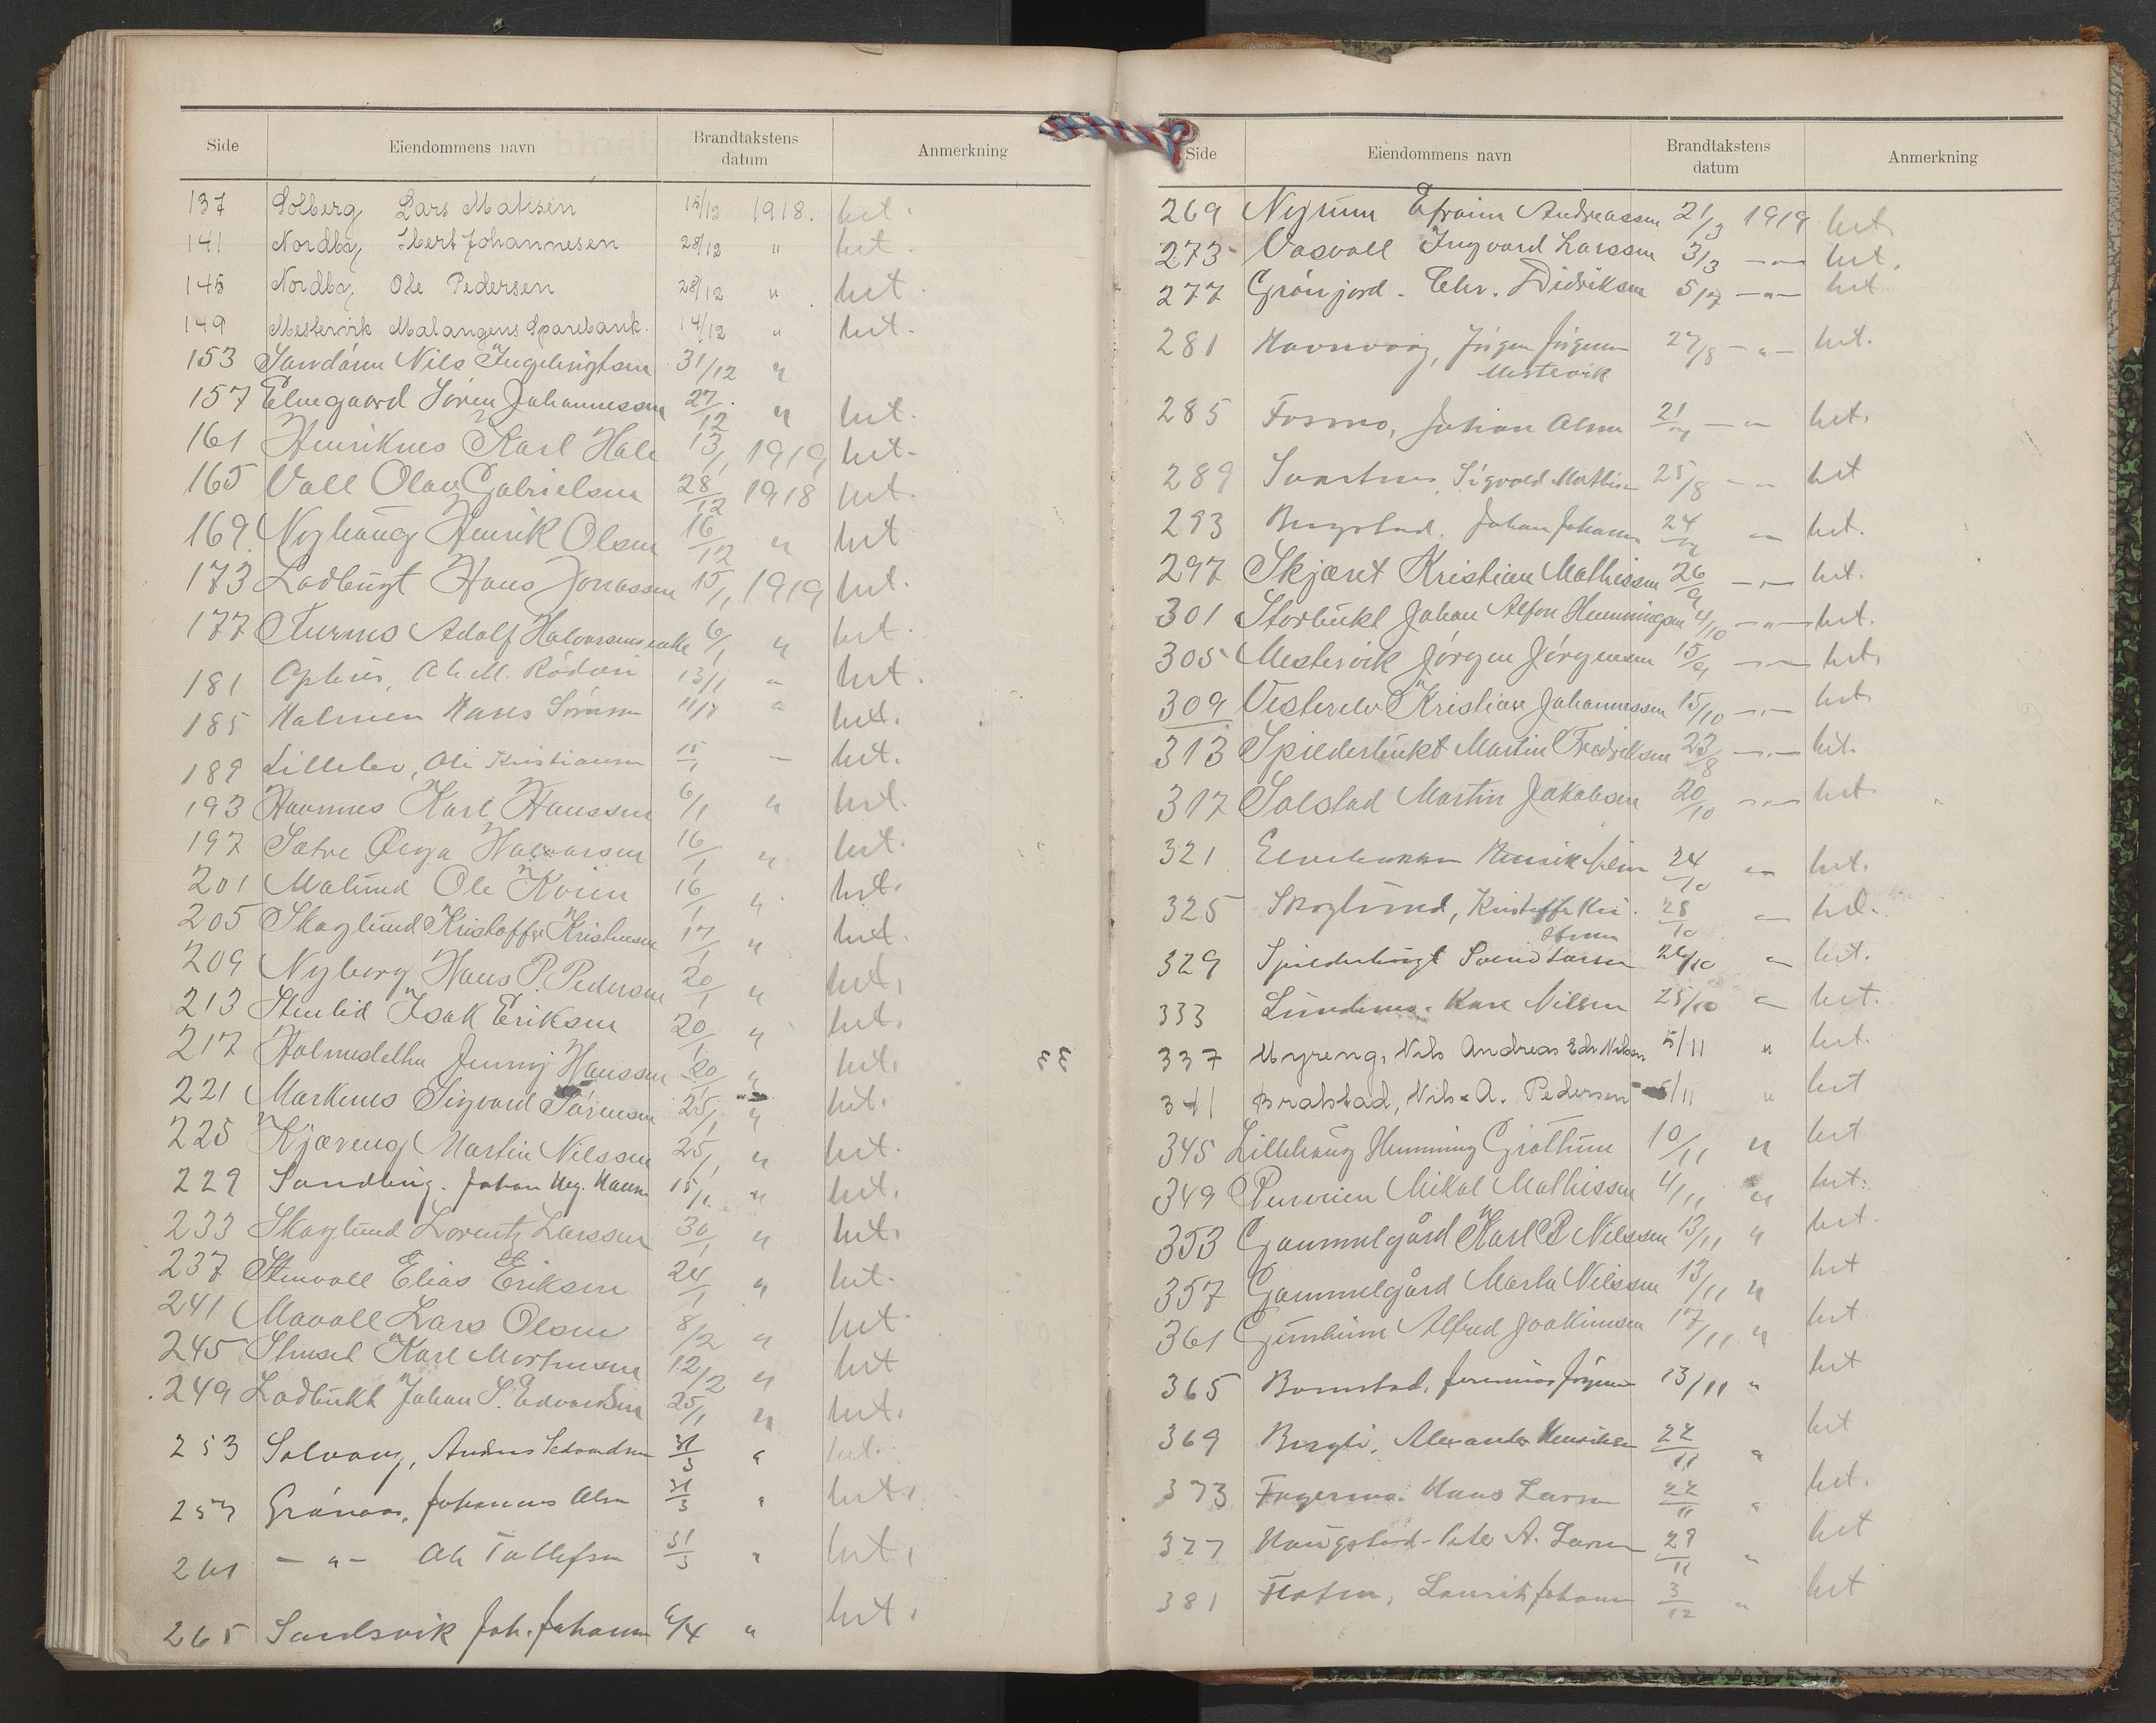 Side Eiendommens navn Brandtakstens datum Anmerkning
137 Solberg Lars Matisen 15/12 1918. ht.
141 Nordby Johannesen 28/12 " ht.
145 Nordby Ole Pedersen 28/12 " ht.
149 Mestervik Malangens Sparebank. 14/12 " ht.
153 Nils Ingebrigtsen 31/12 "
157 Elvegaard Sören Johannessen 27/12 " ht.
161 Henriknes Karl Hals 13/1 1919 ht.
165 Vall Olav Gabrielsen 28/12 1918 ht.
169. Nyhaug Henrik Olsen 16/12 " ht
173 Ladbugt Hans Jonassen 15/1 1919 ht.
177 Adolf Halvorsens enke 6/1 " ht.
181 Ophus, Ole M. 13/1 " ht.
185 Malmen Hans Sörensen ht.
189 Lillelv, Ole Kristiansen 15/1 — ht.
193 Havnnes Karl Hanssen 6/1 " ht.
197 Sætre Halvorsen 16/1 " ht.
201 Molund Ole Kvien 16/1 " ht.
205 Skoglund Kristoffer Kristensen 17/1 " ht.
209 Nyborg Hans P. Pedersen 20/1 " ht.
213 Stenlid Isak Eriksen 20/1 " ht.
217 Jenny Hanssen 20/1 " ht.
221 Marknes Sigvard Sörensen 25/1 " ht.
225 Kjæreng Martin Nilssen 25/1 " ht.
229 Johan 15/1. " ht.
233 Skoglund Lorentz Larssen 30/1 " ht.
237 Stenvoll Elias Eriksen 24/1 " ht.
241 Mavoll Lars Olsen 8/2 " ht.
245 Karl Mortensen 12/2 " ht
249 Ladbukt Johan S. Edvardsen 25/1 " ht.
253 Solvang, Anders Edvardsen 31/3 " ht.
257 Grönaas, Johannes Olsen 31/3 " ht.
261 — " — Ole Tollefsen 31/3 " ht.
265 Sandsvik Joh. Johansen /4 " ht.
Side Eiendommens navn Brandtakstens datum Anmerkning
269 Nyrum Efraim Andreassen 21/3 1919 ht.
273 Vasvoll Ingvard Larssen 3/3 — " — ht.
277 Grönjord. Chr. Didriksen 5/7 — " — ht
281 Havnvaag, Jörgen Jörgensen 27/8 — " — ht.
Mestervik
285 Fosmo, Johan Olsen 21/ — " ht.
289 Svartnes, Sigvald Mathisen 25/8 — " ht
293 Bergstad. Johan Johansen 24/ " ht.
297 Skjæret Kristian Mathissen 26/9 — " — ht.
301 Storbukt Johan Alfon Hemmingsen 4/10 — " — ht.
305 Mestervik Jörgen Jörgensen 15/9 — " — ht.
309 Vesterelv Kristian Johannessen 15/10 — " — ht.
313 Spilderbukt Martin Fredriksen 23/8 — " — ht.
317 Solstad Martin Jakobsen 20/10 — " — ht.
321 Elvebakken Henrik Nilsen 24/10 " ht.
325 Skoglund, Kristoffer Kri- 28/10 " ht.
stensen
329 Spilderbugt Svend Larsen 26/10 " ht.
333 Lundnes. Karl Nilsen 25/10 " ht.
337 Myreng, Nils Andreas Edv. Nilsen 5/11 " ht.
341 Bratstad, Nils A. Pedersen 5/11 " ht
345 Lillehaug Hemming Grøttum 10/11 " ht
349 Mikal Mathissen 4/11 " ht.
353 Gammelgård Karl B Nilssen 13/11 " ht.
357 Gammelgård Marta Nilssen 13/11 " ht
361 Alfred Joakimsen 17/11 " ht
365 Bonstad, Jeremias Jörgensen 13/11 " ht
369 Bergli, Alexander Henriksen 22/11 " ht
373 Fagermo. Hans Larsen 22/11 " ht.
377 Haugstad - Peter A. Larsen 29/11 " ht
381 Laurits Johansen 3/12 " ht